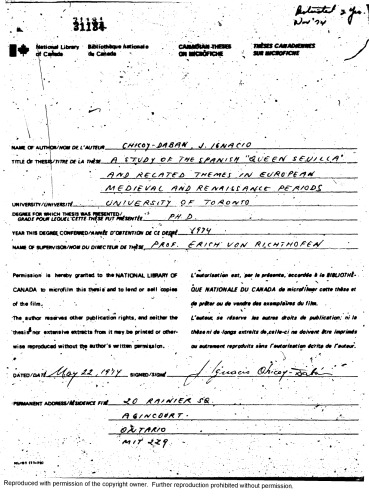 31184
31184
Restricted 2 yrs.
Nov '74
National Library of Canada
Bibliothèque Nationale du Canada
CANADIAN THESES ON MICROFICHE
THÈSES CANADIENNES SUR MICROFICHE
NAME OF AUTHOR/NOM DE L'AUTEUR CHICOY-DABAN, J. IGNACIO
TITLE OF THESIS/TITRE DE LA THÈSE A STUDY OF THE SPANISH "QUEEN SEVILLA"
AND RELATED THEMES IN EUROPEAN
MEDIEVAL AND RENAISSANCE PERIODS
UNIVERSITY/UNIVERSITÉ UNIVERSITY OF TORONTO
DEGREE FOR WHICH THESIS WAS PRESENTED/
GRADE POUR LEQUEL CETTE THÈSE FUT PRÉSENTÉE PH D.
YEAR THIS DEGREE CONFERRED/ANNÉE D'OBTENTION DE CE DEGRÉ 1974
NAME OF SUPERVISOR/NOM DU DIRECTEUR DE THÈSE PROF. ERICH VON RICHTHOFEN
Permission is hereby granted to the NATIONAL LIBRARY OF
CANADA to microfilm this thesis and to lend or sell copies
of the film.
The author reserves other publication rights, and neither the
thesis nor extensive extracts from it may be printed or other-
wise reproduced without the author's written permission.
L'autorisation est, par la présente, accordée à la BIBLIOTHÈ-
QUE NATIONALE DU CANADA de microfilmer cette thèse et
de prêter ou de vendre des exemplaires du film.
L'auteur se réserve les autres droits de publication; ni la
thèse ni de longs extraits de celle-ci ne doivent être imprimés
ou autrement reproduits sans l'autorisation écrite de l'auteur.
DATED/DATÉ May 22, 1974 SIGNED/SIGNÉ J. Ignacio Chicoy-Dabán
PERMANENT ADDRESS/RÉSIDENCE FIXE 20 RAINIER SQ.
AGINCOURT.
ONTARIO
M1T 2Z9
Reproduced with permission of the copyright owner. Further reproduction prohibited without permission.